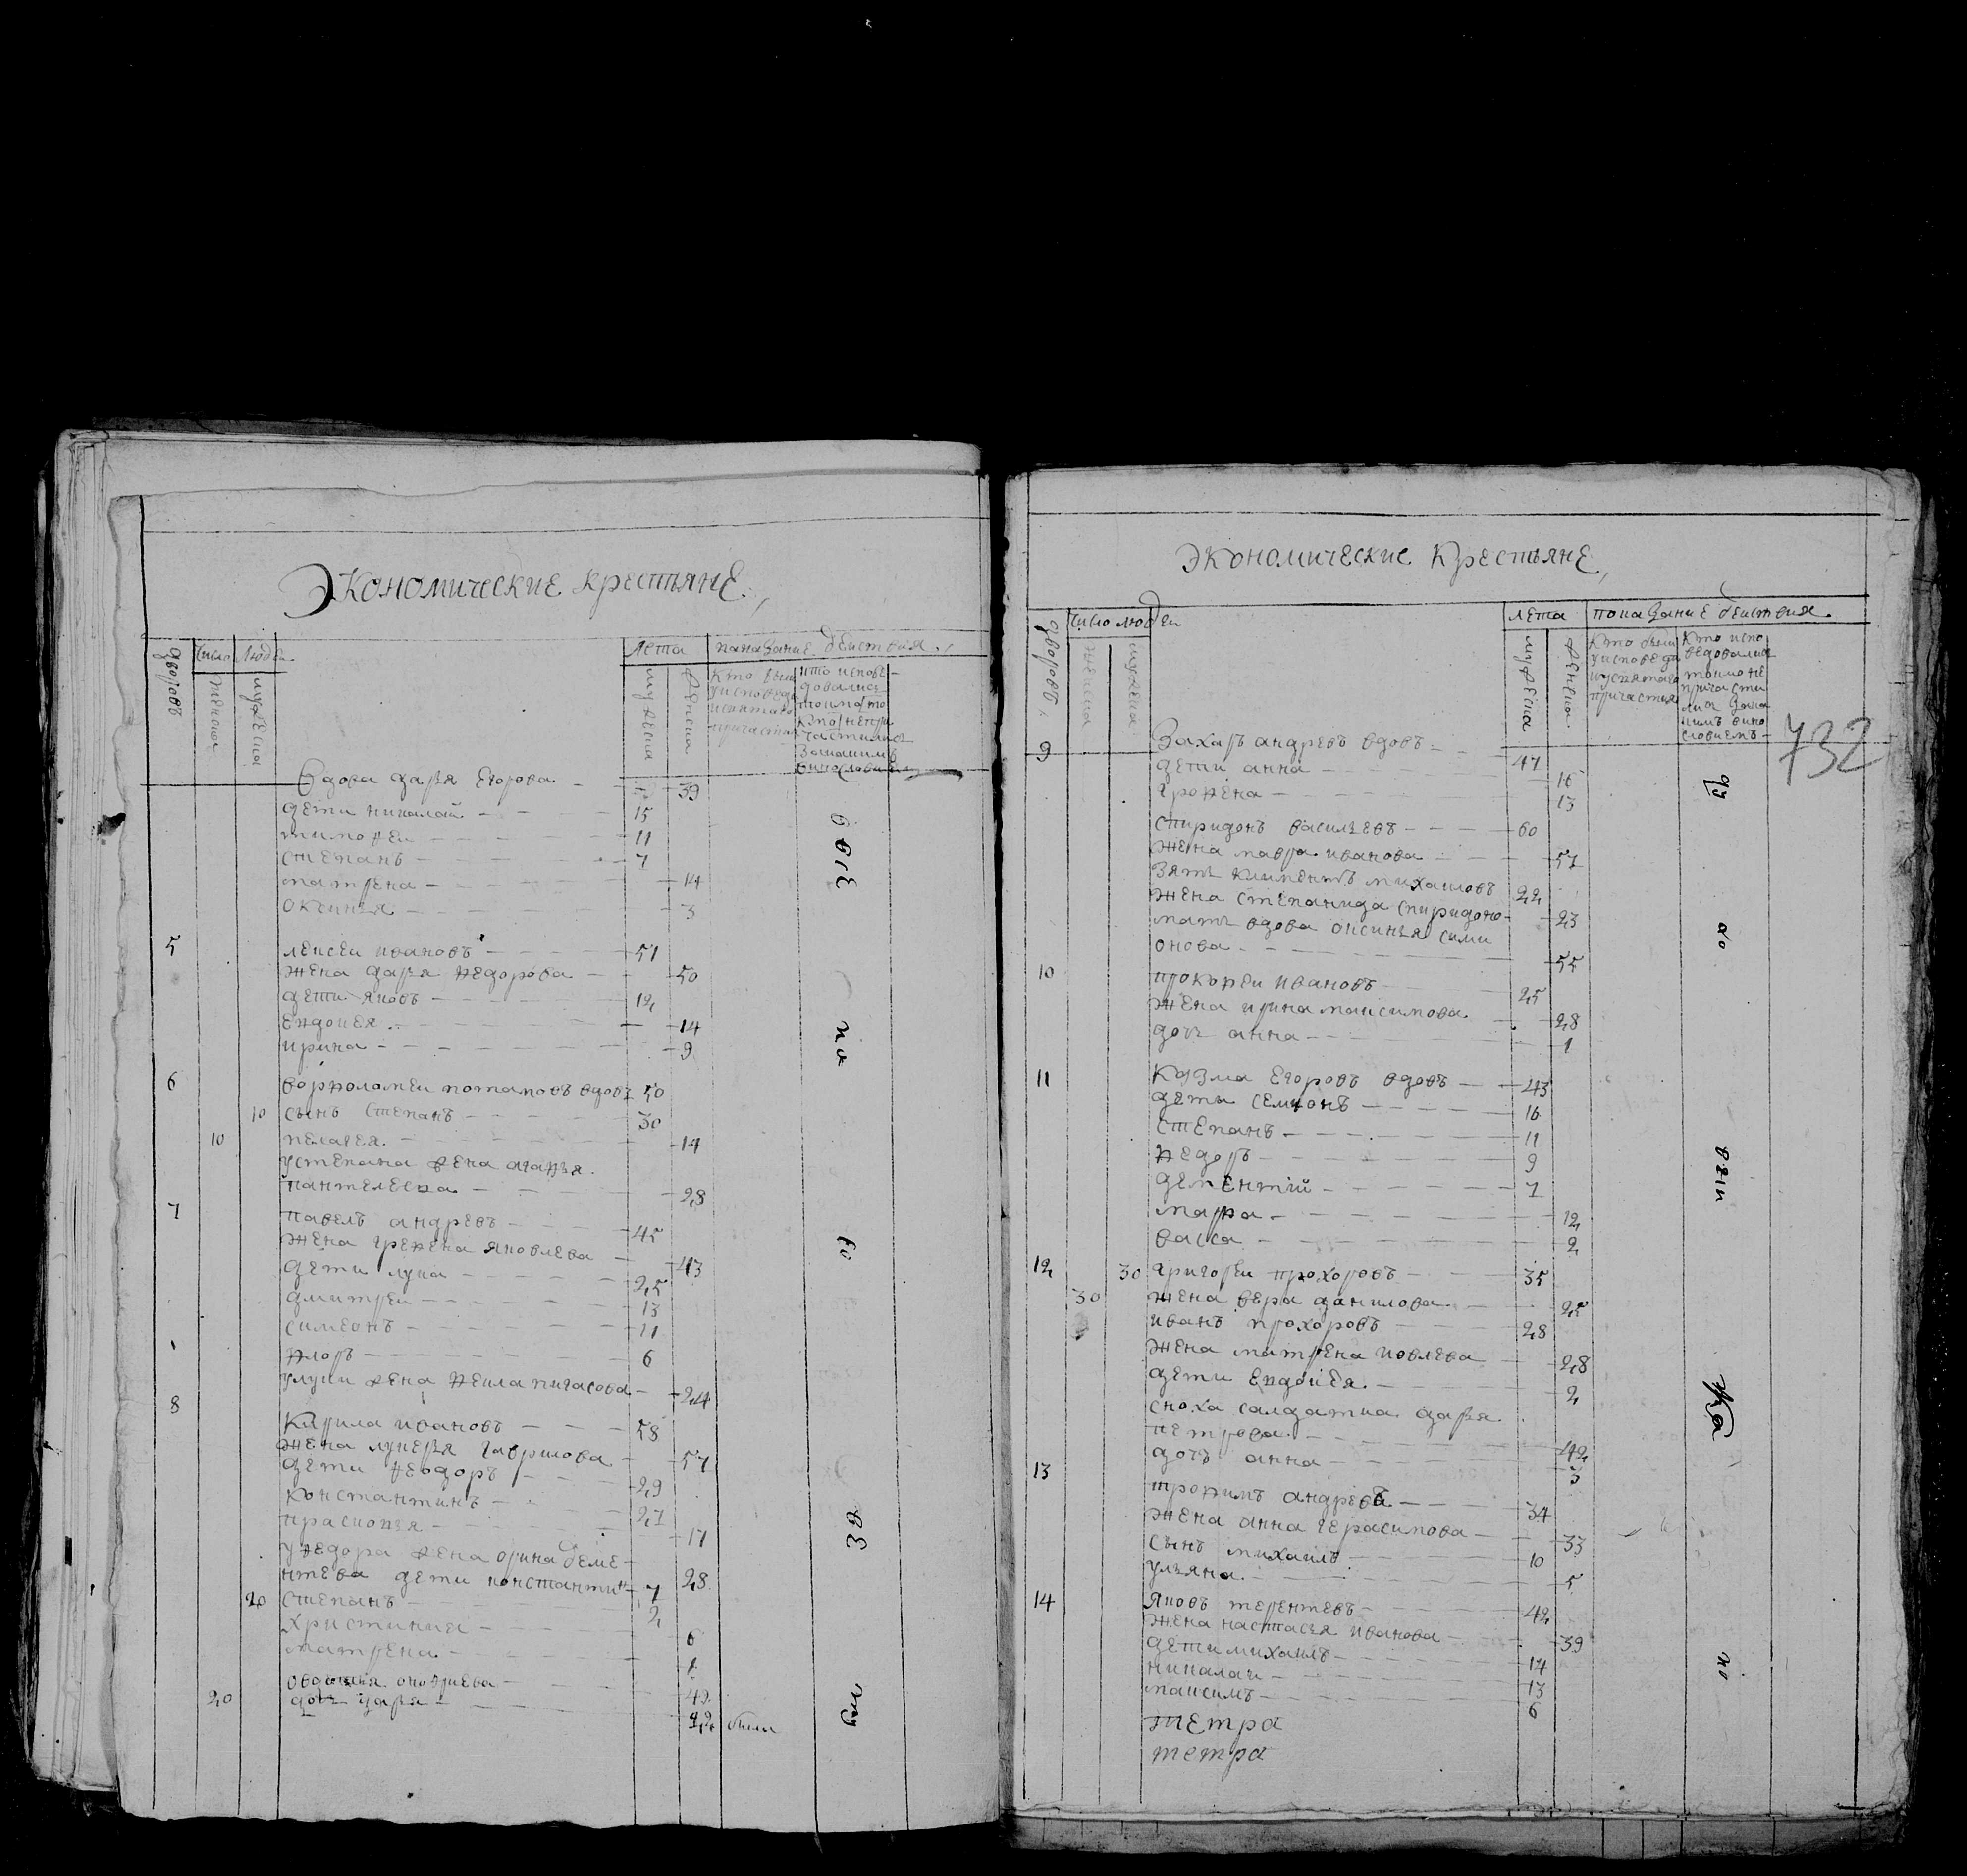 Экономические крестьяне.,
дворовъ
Число Людеи
женска
мужеска
Лета
мужеска
женска
паказание деиствия.,
Кто был
уисповеди
исвятаго
причастия
кто испове-
довалис
токмо
кто непри
частилис
Закаким
винословием
Вдова даря Егорова 39
дети николай 15
тимофеи 11
степанъ 7
матрена 14
оксинья 3
5 лексеи ивановъ 51
жена даря федорова 50
дети яковъ 12
евдокея 14
ирина 9
6 ворфоломеи потаповъ вдовъ 50
10 сынъ степанъ 30
10 пелагея 14
устепана жена агафья
пантелеева 28
7 павелъ андревъ 45
жена грефена яковлева 43
дети лука 25
дмитреи 13
симеонъ 11
флоръ 6
улуки жена фекла пигасова 24
8 Кирила ивановъ 58
жена лукеря гаврилова 57
дети феодоръ 29
константинъ 27
прасковя 17
уфедора жена орина деме-
нтева дети константинъ 7 28
20 степанъ 2
христиния 6
матрена 1
овдотья 42
20 доч даря 22 были
732
Экономические крестьяне,
дворовъ
число людеи
женска
мужеска
лета
мужеска
женска
показание деиствия
Кто были
уисповеди
исвятаго
причастия
Кто испо
ведовалис
токмо не
причасти
лис Зака
кимъ вино
словиемъ
9 Захаръ андревъ вдовъ 47
дети анна 16
грофена 13
спиридонъ васильевъ 60
жена мавра иванова 57
зять климентъ михаиловъ 22
жена степанида спиридоно- 23
мать вдова оксинья сими
онова 55
10 прокофеи ивановъ 25
жена ирина максимова 28
доч анна 1
11 Кузма Егоровъ вдовъ 43
дети семионъ 16
степанъ 11
федоръ 9
дементий 7
марфа 12
васса 2
12 30 григореи прохоровъ 35
30 жена вера данилова 25
иванъ прохоровъ 28
жена матрена иовлева 28
дети евдокея 2
сноха салдатка даря
петрова 42
доч анна 3
13 трофимъ андревъ 34
жена анна герасимова 33
сынъ михаилъ 10
ульяна 5
14 яковъ терентевъ 42
жена настасья иванова 39
дети михаилъ 14
николаи 13
максимъ 6
тетра
тетра